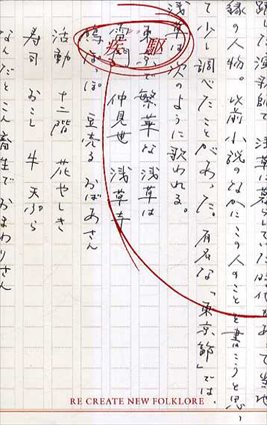 て少し調べたことがあった。有名な「東京節」では、
浅草は次のように歌われる。
東京で繁華な浅草は
雷門 仲見世 浅草寺
鳩ぽっぽ 豆売る おばあさん
活動 十二階 花やしき
寿司 おこし 牛 天ぷら
なんだとこん畜生で おまわりさん
疾駆
RE CREATE NEW FOLKLORE